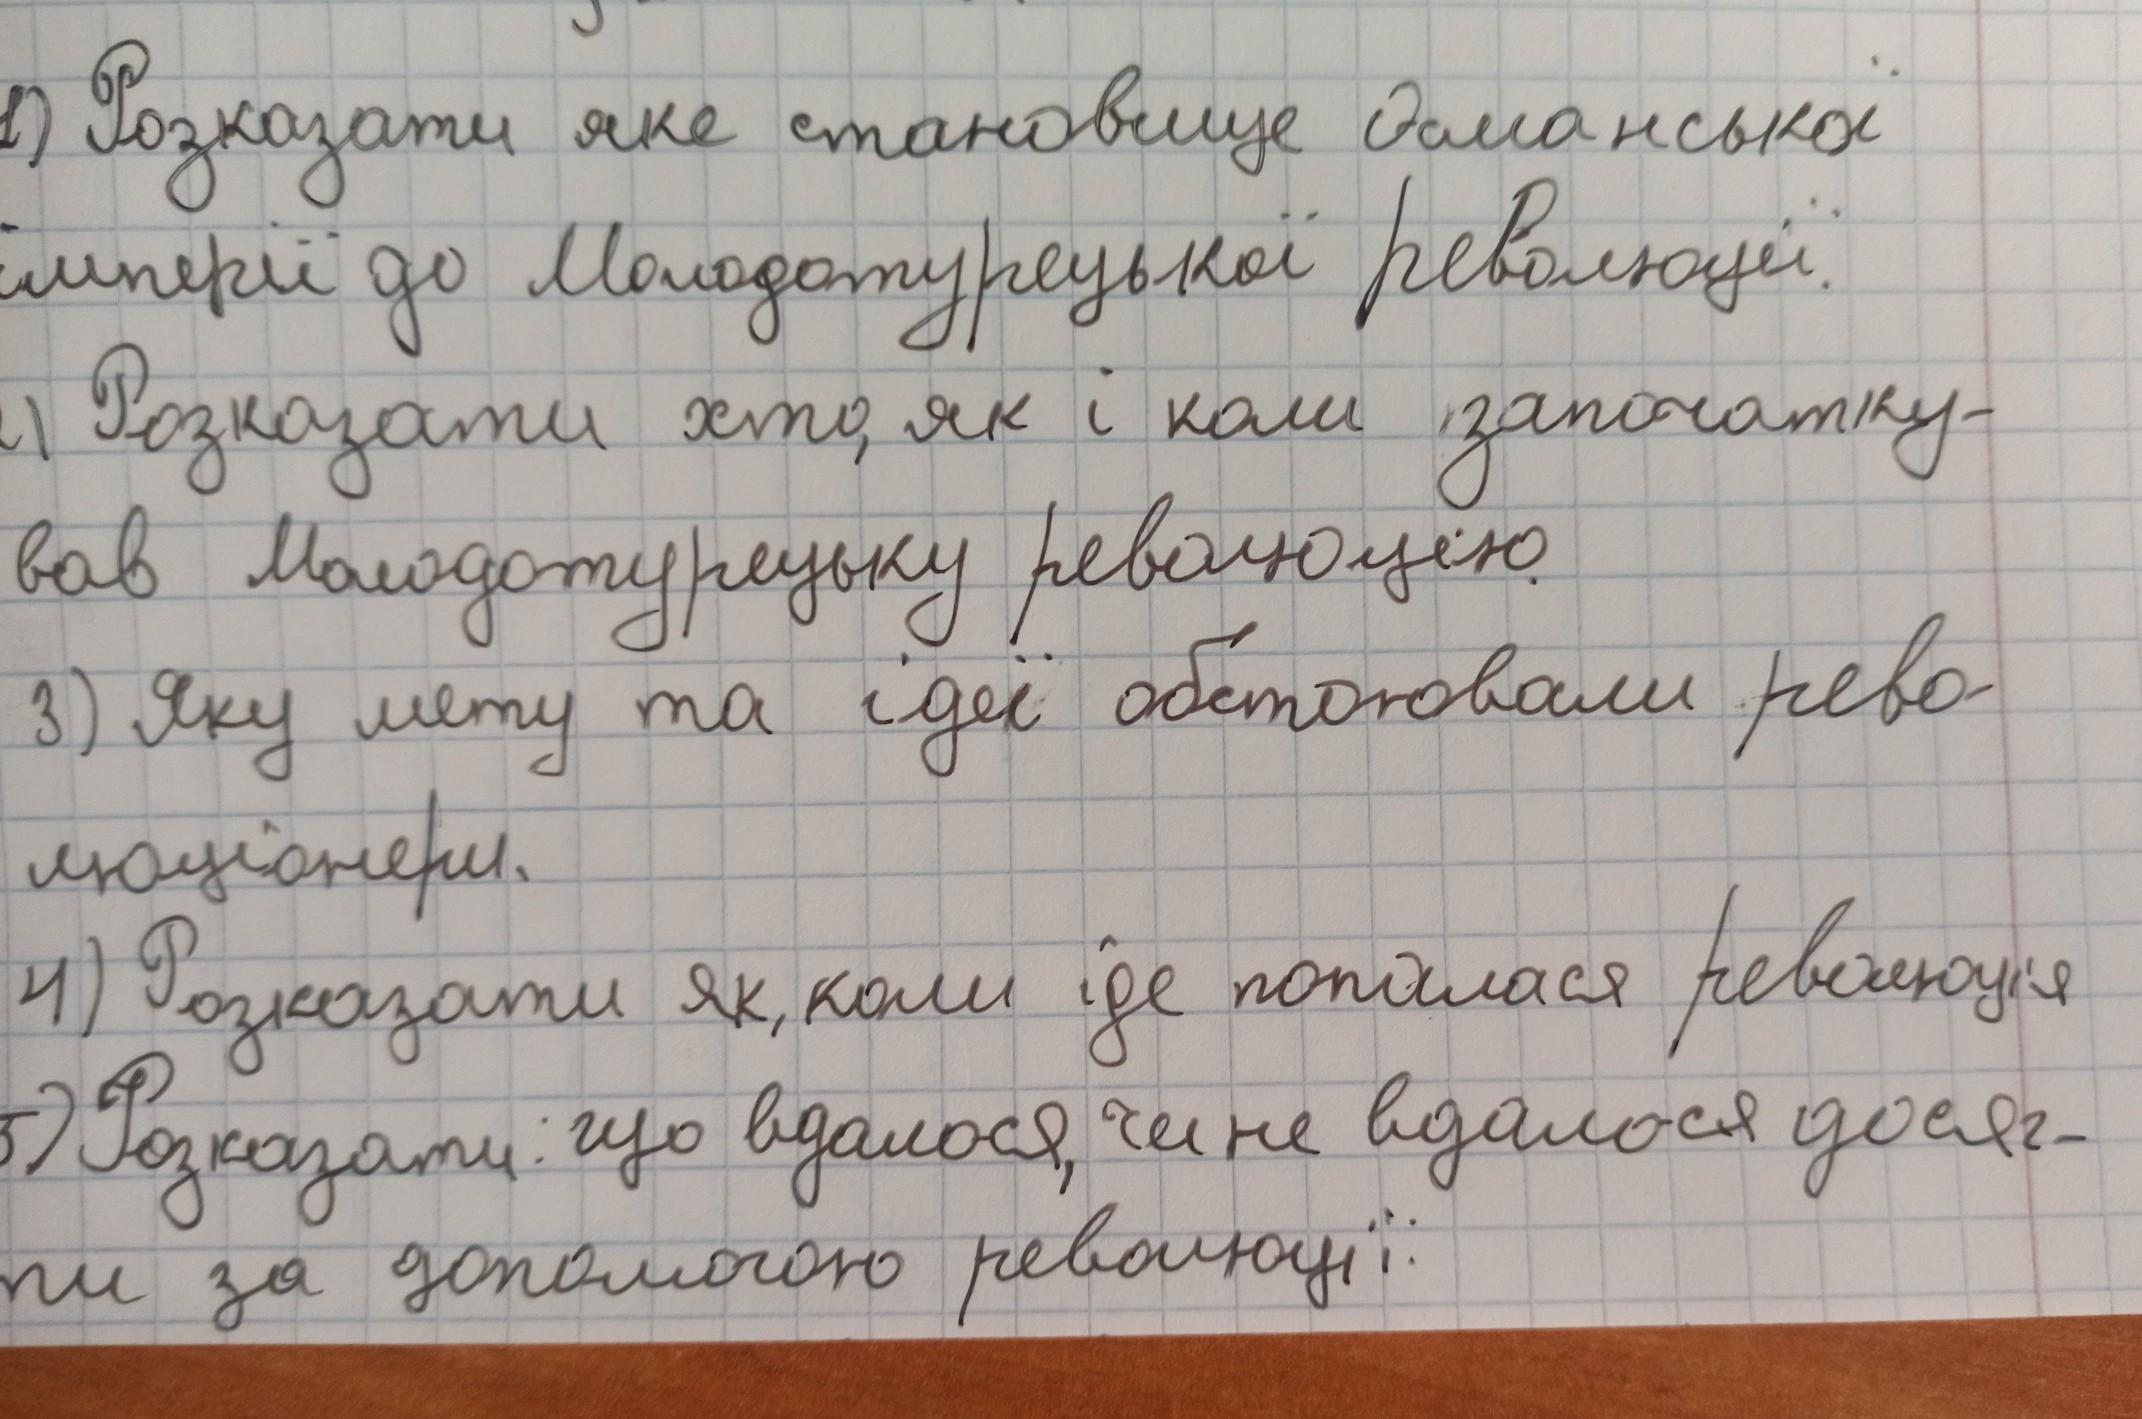 1) Розказати яке становище Османської
імперії до Молодотурецької революції.
2) Розказати хто, як і коли започатку-
вав Молодотурецьку революцію.
3) Яку мету та ідеї обстоювали рево-
люціонери.
4) Розказати як, коли і де почалася революція
5) Розказати: що вдалося, чи не вдалося досяг-
ти за допомогою революції.